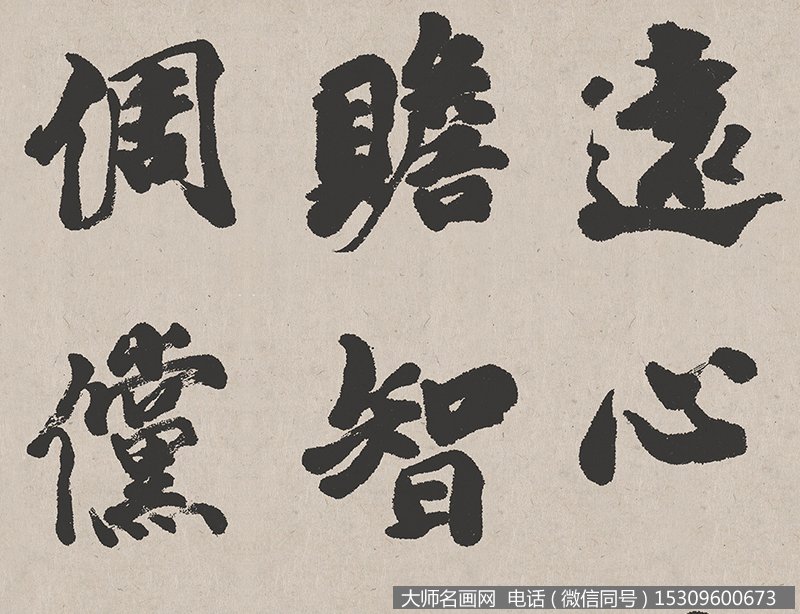 遠心
贍智
倜儻
大师名画网 电话（微信同号）15309600673